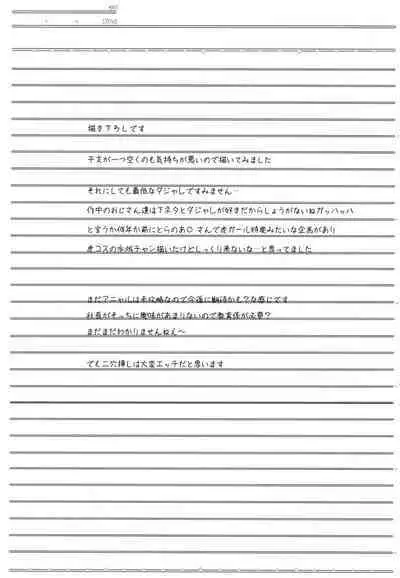 描き下ろしです
干支が一つ空くのも気持ちが悪いので描いてみました
それにしても最低なダジャレですみません…
作中のおじさん達は下ネタとダジャレが好きだからしょうがないねガッハッハ
と言うか何年か前にとらのあ○さんで虎ガール特集みたいな企画があり
虎コスの水城チャン描いたけどしっくり来ないな…と思ってました
まだアニャルは未攻略なので今後に期待かも?な感じです
社長がそっちに興味があまりないので教育係が必要?
まだまだわかりませんねえ～
でも二穴挿しは大変エッチだと思います